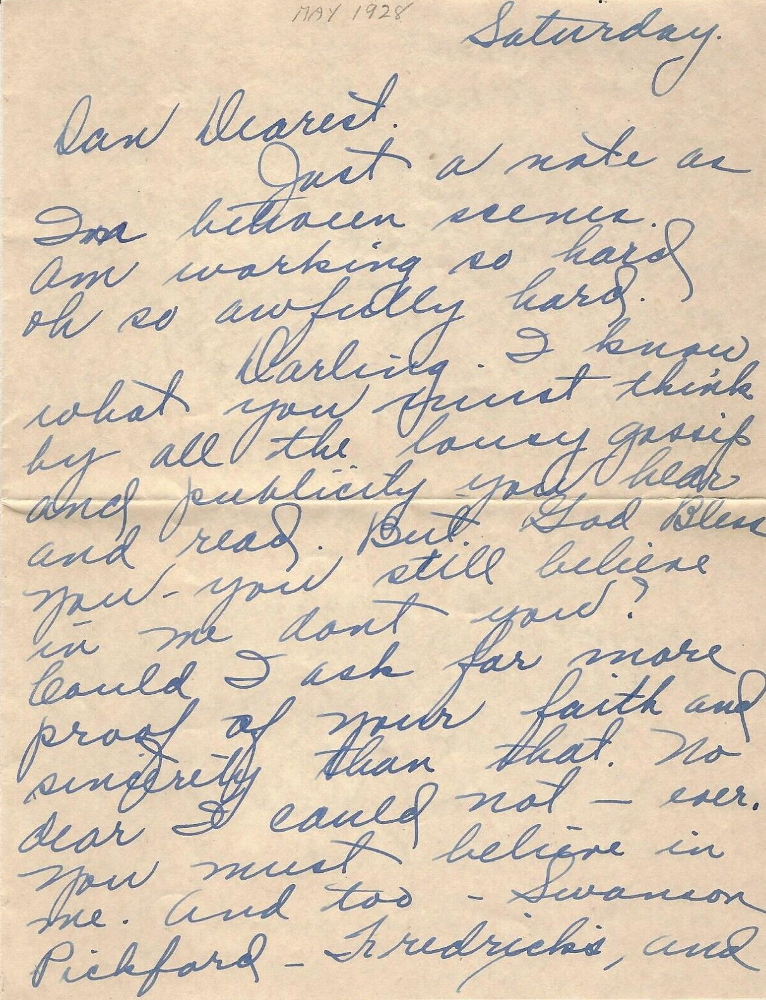 MAY 1928
Saturday.
Dan Dearest.
Just a note as
Im between scenes.
Am working so hard
oh so awfully hard.
Darling. I know
what you must think
by all the lousy gossip
and publicity you hear
and read. But God Bless
you - you still believe
in me dont you?
Could I ask for more
proof of your faith and
sincerety than that. No
dear I could not - ever.
You must believe in
me. And too - Swanson
Pickford - Fredricks, and